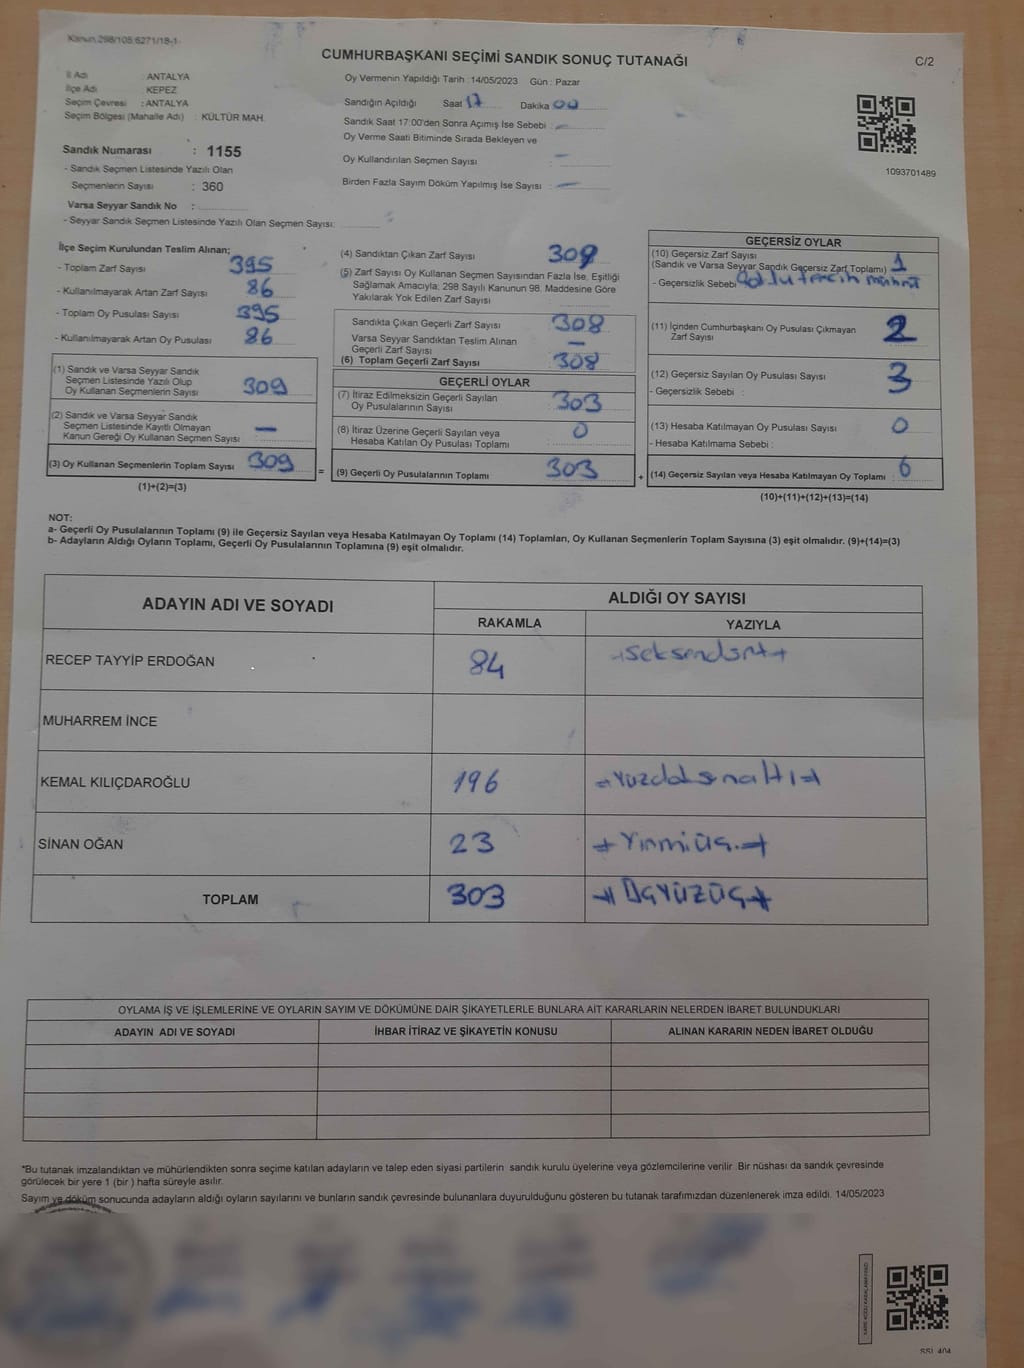 Kanun.298/105:6271/18-1
CUMHURBAŞKANI SEÇİMİ SANDIK SONUÇ TUTANAĞI
C/2
İl Adı : ANTALYA
İlçe Adı : KEPEZ
Seçim Çevresi : ANTALYA
Seçim Bölgesi (Mahalle Adı) : KÜLTÜR MAH.
Oy Vermenin Yapıldığı Tarih : 14/05/2023 Gün : Pazar
Sandığın Açıldığı Saat 17 Dakika 00
Sandık Saat 17:00'den Sonra Açımış İse Sebebi : –
Oy Verme Saati Bitiminde Sırada Bekleyen ve
Oy Kullandırılan Seçmen Sayısı : –
Birden Fazla Sayım Döküm Yapılmış İse Sayısı : –
1093701489
Sandık Numarası : 1155
- Sandık Seçmen Listesinde Yazılı Olan
Seçmenlerin Sayısı : 360
Varsa Seyyar Sandık No :
- Seyyar Sandık Seçmen Listesinde Yazılı Olan Seçmen Sayısı:
İlçe Seçim Kurulundan Teslim Alınan;
- Toplam Zarf Sayısı 395
- Kullanılmayarak Artan Zarf Sayısı 86
- Toplam Oy Pusulası Sayısı 395
- Kullanılmayarak Artan Oy Pusulası 86
(1) Sandık ve Varsa Seyyar Sandık
Seçmen Listesinde Yazılı Olup
Oy Kullanan Seçmenlerin Sayısı 309
(2) Sandık ve Varsa Seyyar Sandık
Seçmen Listesinde Kayıtlı Olmayan
Kanun Gereği Oy Kullanan Seçmen Sayısı –
(3) Oy Kullanan Seçmenlerin Toplam Sayısı 309 =
(1)+(2)=(3)
(4) Sandıktan Çıkan Zarf Sayısı 309
(5) Zarf Sayısı Oy Kullanan Seçmen Sayısından Fazla İse, Eşitliği
Sağlamak Amacıyla, 298 Sayılı Kanunun 98. Maddesine Göre
Yakılarak Yok Edilen Zarf Sayısı :
Sandıkta Çıkan Geçerli Zarf Sayısı : 308
Varsa Seyyar Sandıktan Teslim Alınan
Geçerli Zarf Sayısı : –
(6) Toplam Geçerli Zarf Sayısı : 308
GEÇERLİ OYLAR
(7) İtiraz Edilmeksizin Geçerli Sayılan
Oy Pusulalarının Sayısı : 303
(8) İtiraz Üzerine Geçerli Sayılan veya
Hesaba Katılan Oy Pusulası Toplamı : 0
(9) Geçerli Oy Pusulalarının Toplamı : 303 +
GEÇERSİZ OYLAR
(10) Geçersiz Zarf Sayısı
(Sandık ve Varsa Seyyar Sandık Geçersiz Zarf Toplamı) : 1
- Geçersizlik Sebebi
(11) İçinden Cumhurbaşkanı Oy Pusulası Çıkmayan
Zarf Sayısı 2
(12) Geçersiz Sayılan Oy Pusulası Sayısı : 3
- Geçersizlik Sebebi :
(13) Hesaba Katılmayan Oy Pusulası Sayısı : 0
- Hesaba Katılmama Sebebi :
(14) Geçersiz Sayılan veya Hesaba Katılmayan Oy Toplamı : 6
(10)+(11)+(12)+(13)=(14)
NOT:
a- Geçerli Oy Pusulalarının Toplamı (9) ile Geçersiz Sayılan veya Hesaba Katılmayan Oy Toplamı (14) Toplamları, Oy Kullanan Seçmenlerin Toplam Sayısına (3) eşit olmalıdır. (9)+(14)=(3)
b- Adayların Aldığı Oyların Toplamı, Geçerli Oy Pusulalarının Toplamına (9) eşit olmalıdır.
ADAYIN ADI VE SOYADI
ALDIĞI OY SAYISI
RAKAMLA YAZIYLA
RECEP TAYYİP ERDOĞAN 84 seksendört
MUHARREM İNCE
KEMAL KILIÇDAROĞLU 196 Yüzdoksanaltı
SİNAN OĞAN 23 Yirmiüç
TOPLAM 303 ÜÇYÜZÜÇ
OYLAMA İŞ VE İŞLEMLERİNE VE OYLARIN SAYIM VE DÖKÜMÜNE DAİR ŞİKAYETLERLE BUNLARA AİT KARARLARIN NELERDEN İBARET BULUNDUKLARI
ADAYIN ADI VE SOYADI İHBAR İTİRAZ VE ŞİKAYETİN KONUSU ALINAN KARARIN NEDEN İBARET OLDUĞU
*Bu tutanak imzalandıktan ve mühürlendikten sonra seçime katılan adayların ve talep eden siyasi partilerin sandık kurulu üyelerine veya gözlemcilerine verilir .Bir nüshası da sandık çevresinde
görülecek bir yere 1 (bir ) hafta süreyle asılır.
Sayım ve döküm sonucunda adayların aldığı oyların sayılarını ve bunların sandık çevresinde bulunanlara duyurulduğunu gösteren bu tutanak tarafımızdan düzenlenerek imza edildi. 14/05/2023